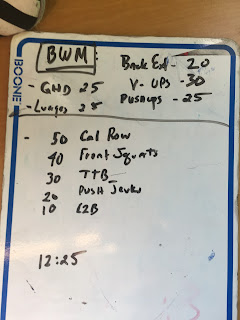 BOONE
BWM:
- GHD 25
- Lunges 25
Back Ext - 20
V-UPS - 30
Pushups - 25
- 50 Cal Row
40 Front Squats
30 TTB
20 Push Jerks
10 C2B
12:25